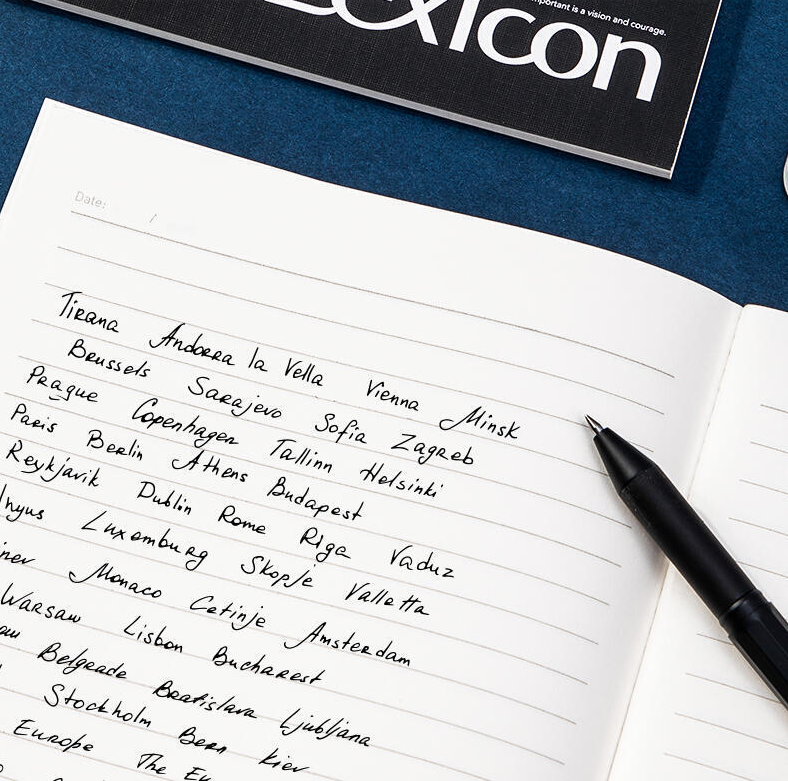 important is a vision and courage.
Lexicon
Date: /
Tirana Andorra la Vella Vienna Minsk
Brussels Sarajevo Sofia Zagreb
Prague Copenhagen Tallinn Helsinki
Paris Berlin Athens Budapest
Reykjavik Dublin Rome Riga Vaduz
lnyus Luxemburg Skopje Valletta
Monaco Cetinje Amsterdam
Warsaw Lisbon Bucharest
Belgrade Bratislava Ljubljana
Stockholm Bern Kiev
Europe The Eu